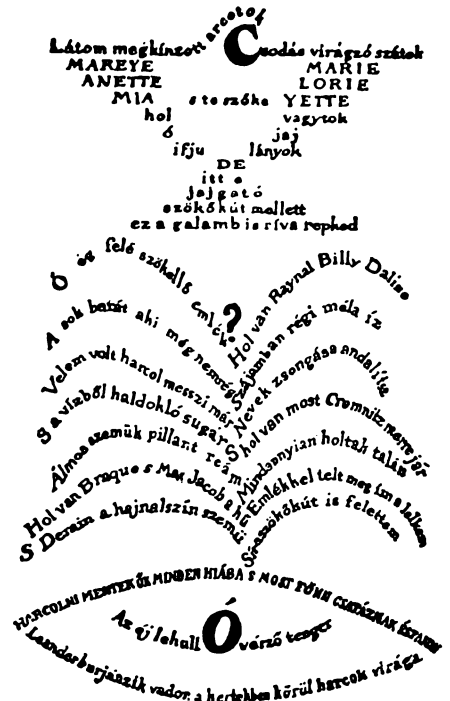 Látom megkínzott arcotok Csodás virágzó szátok
MAREYE MARIE
ANETTE LORIE
MIA s te szőke YETTE
hol vagytok
ó jaj
ifju lányok
DE
itt a
jajgató
szökőkút mellett
ez a galamb is ríva repked
Ó ég felé szökellő emlék
?
A sok barát aki még nemrég
Velem volt harcol messzi már
S a vízből haldokló sugár
Álmos szemük pillant reám
Hol van Braque s Max Jacob a hű
S Derain a hajnalszín szemű
Hol van Raynal Billy Dalize
Szájamban régi méla íz
Nevek zsongása andalítva
S hol van most Cremnitz merre jár
Mindannyian holtak talán
Emlékkel telt meg ím a lelkem
Sír a szökőkút is felettem
HARCOLNI MENTEK ŐK MINDEN HIÁBA S MOST FÖNN CSATÁZNAK ÉSZAKON
Az éj lehull Ó vérző tenger
Leander burjánzik vadon a kertekben körül harcok virága